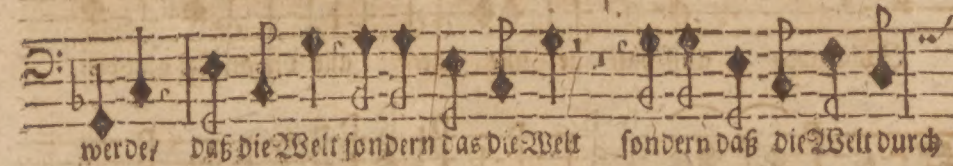 werde/ daß die Welt sondern das die Welt sondern daß die Welt durch